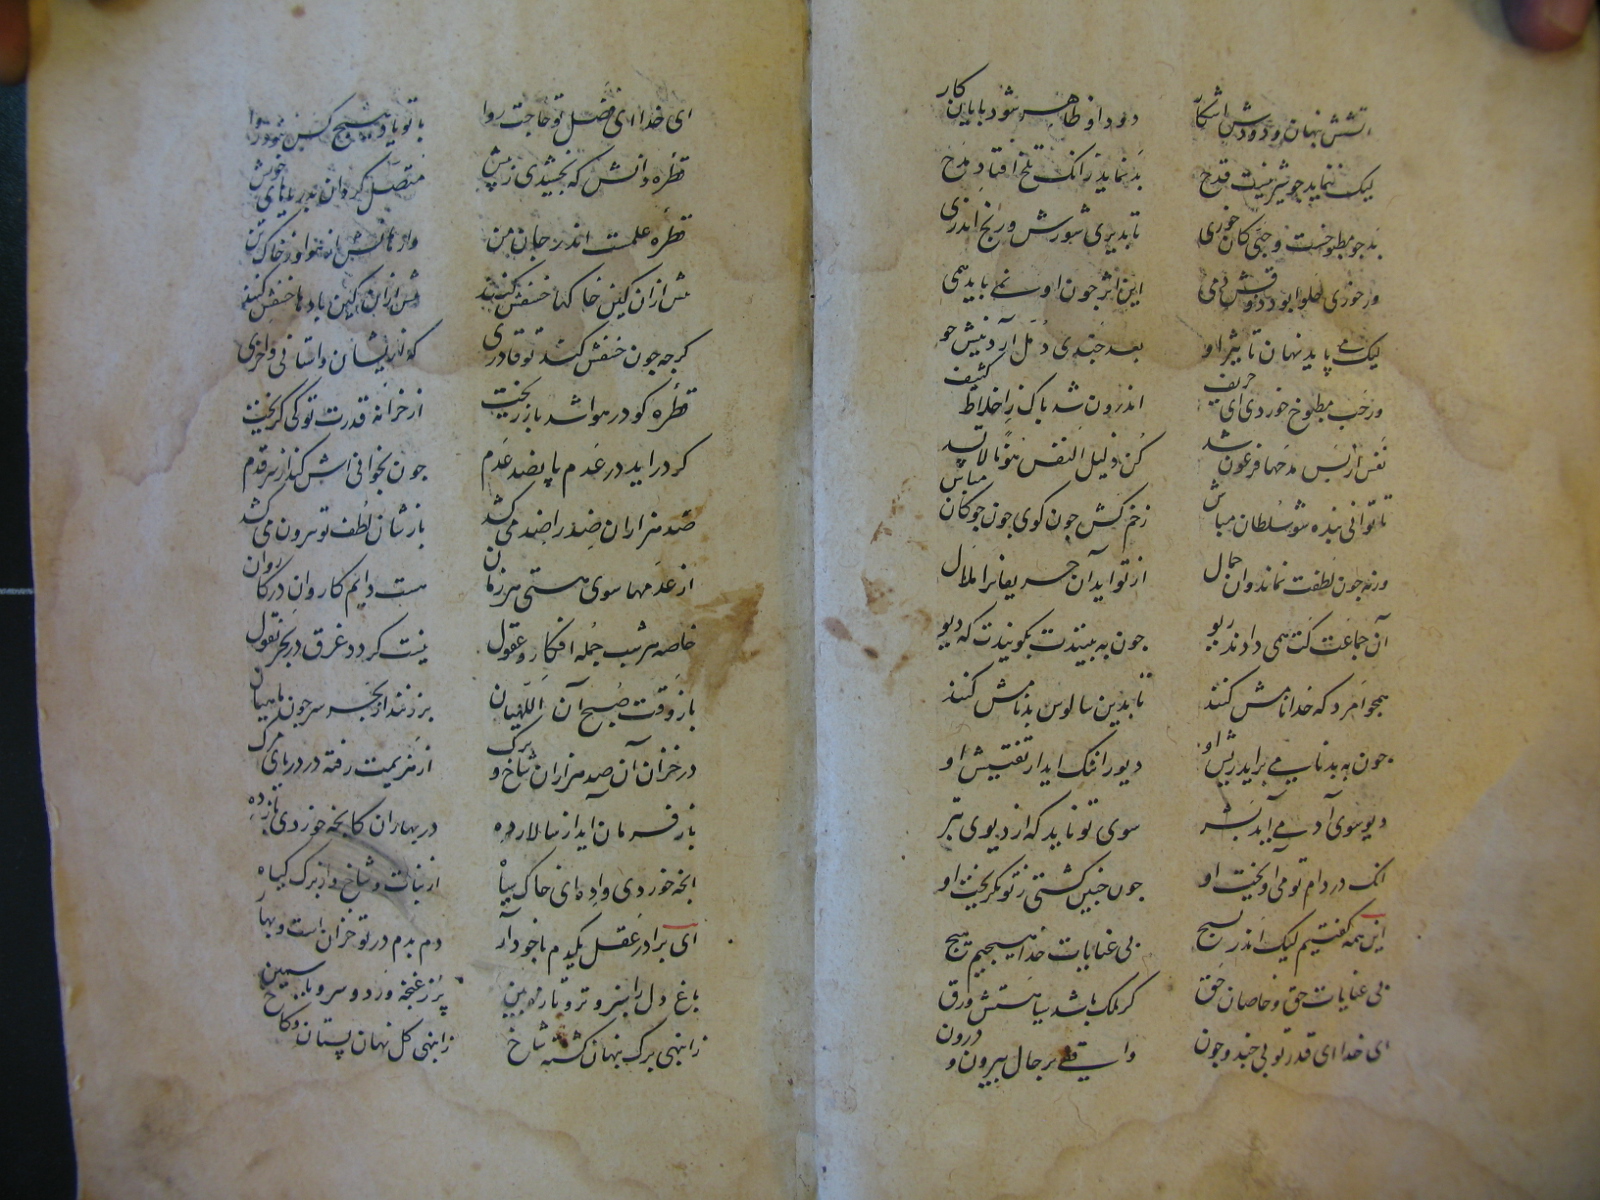 اتشش پنهان و ذوقش اشکار دود او ظاهر شود پایان کار
لیک ننماید چو شیرینست قدح بد نماید زانک تلخ افتاد مدح
بد چو مطبوخست و حب کان خوری تا بدیری شورش و رنج اندری
ور خوری حلوا بود ذوقش دمی این اثر چون او نمی باید همی
لیک می پاید نهان تاثیر او بعد چندی دمل آرد نیش جو
ور حب مطبوخ خوردی ای حریف اندرون شد پاک ز اخلاط کثیف
نفس از بس مدحها فرعون شد کن ذلیل النفس هونا لا تسد
تا توانی بنده شو سلطان مباش زخم کش چون کوی چون جوکان مباش
ورنه جون لطفت نماند وان جمال از تو اید آن حریفانرا ملال
آن جماعت کت همی دادند ریو جون به بینندت بکویندت که دیو
همجو امرد که خدا نامش کنند تا بدین سالوس بدنامش کنند
جون به بدنامی براید ریش او دیو را ننک اید از تفتیش او
دیو سوی آدمی اید بشر سوی تو ناید که از دیوی بتر
انک در دام تو می آویخت او جون جنین کشتی ز تو بکریخت او
این همه کفتیم لیک اندر بسیج بی عنایات خدا هیجیم هیج
بی عنایات حق و خاصان حق کر ملک باشد سیاهستش ورق
ای خدا ای قدر تو بی جند و جون واقفی بر حال بیرون و درون
ای خدا ای فضل تو حاجت روا با تو یاد هیچ کس نبود روا
قطره دانش که بخشیدی ز پیش متصل کردان به دریاهای خویش
قطره علمست اندر جان من وارهانش از هوا وز خاک تن
بیش ازان کین خاکها خسفش کنند بیش ازان کین بادها نشفش کنند
کرجه جون خسفش کند تو قادری که ازیشان واستانی واخری
قطره کو در هوا شد یا بریخت از خزانه قدرت تو کی کریخت
کر دراید در عدم یا بصد عدم جون بخوانی اش کند از سر قدم
صد هزاران ضد ضد را می کشد بازشان لطف تو بیرون می کشد
از عدمها سوی هستی هر زمان هست دایم کاروان در کاروان
خاصه هر شب جمله افکار و عقول نیست کردد غرق در بحر نغول
باز وقت صبح آن اللهیان بر زنند از بحر سر جون ماهیان
در خزان آن صد هزاران شاخ و برک از هزیمت رفته در دریای مرک
باز فرمان اید از سالار ده
انجه خوردی واده ای خاک سیاه از نبات و شاخ و از برک کیاه
ای برادر عقل یکدم با خود آر دم بدم در تو خزان است و بهار
باغ دل را سبز و تر و تازه بین پر ز غنجه و ورد و سرو و یاسمین
ز انبهی برک پنهان کشته شاخ ز انبهی کل نهان بستان و کاخ